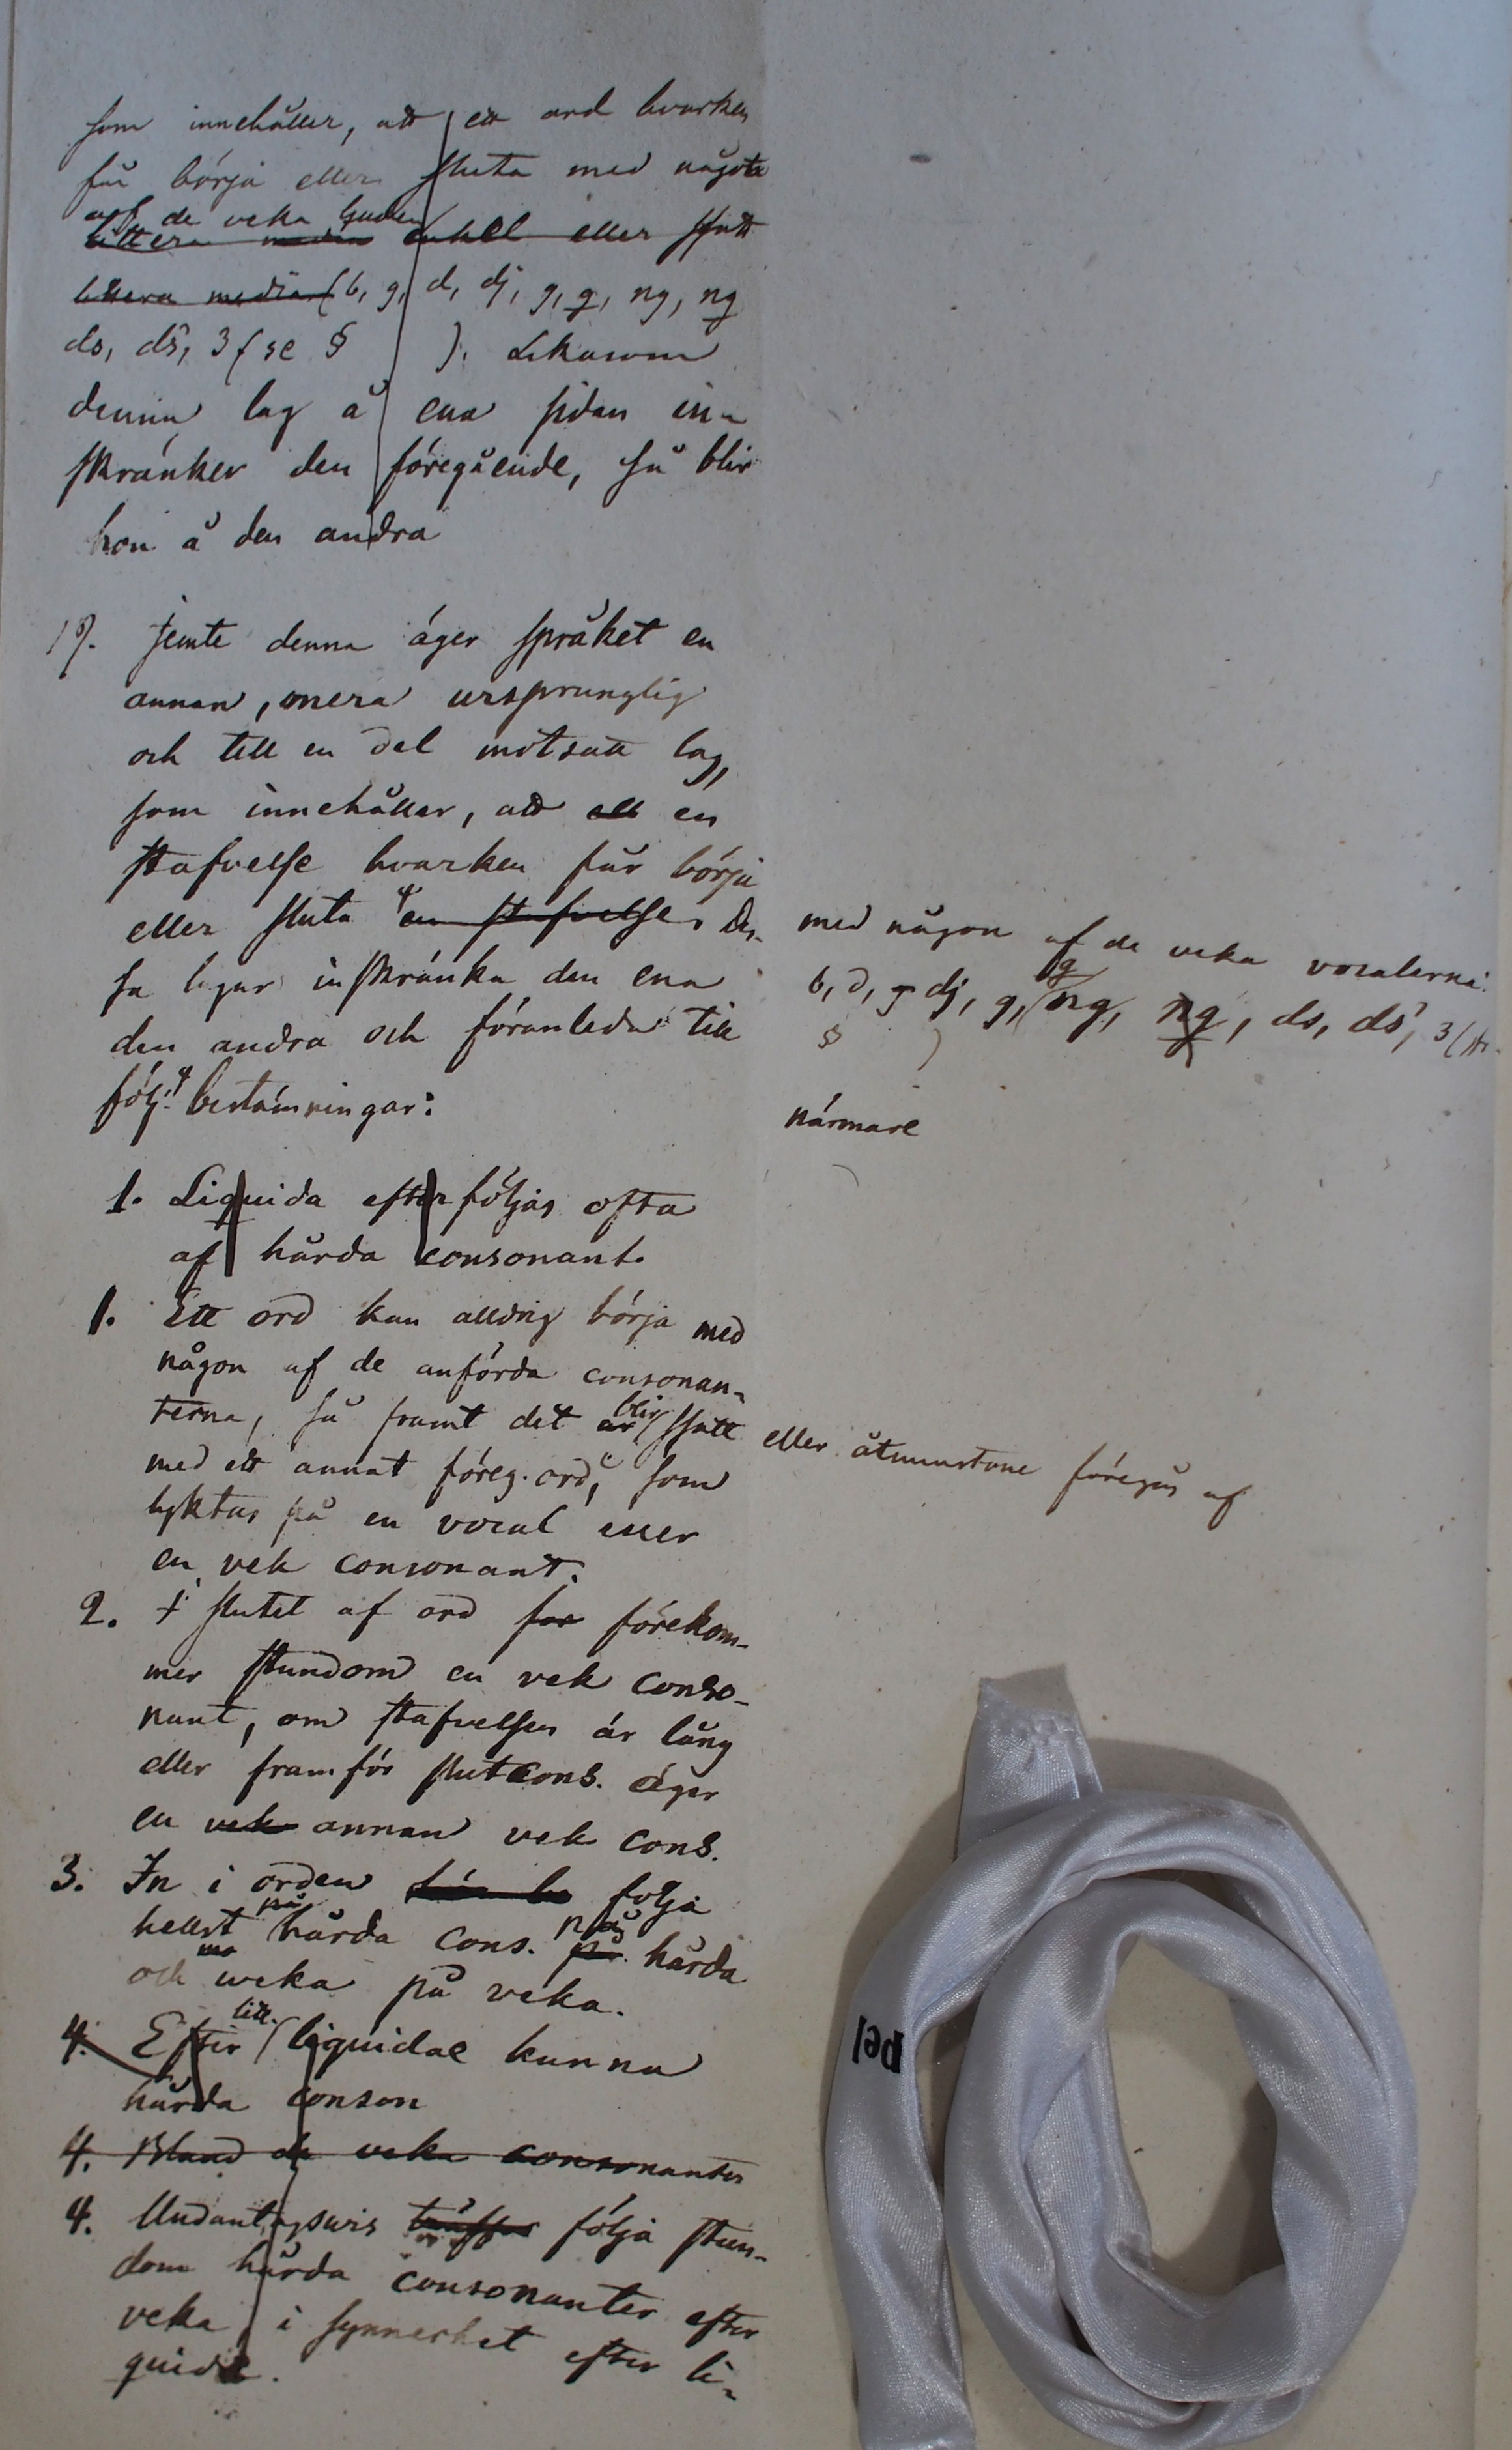 som innehåller, att ett ord hvarken
får börja eller sluta med något
af de veka ljuden
littera media enkel eller ssatt
littera media (b, g, d, dj, g, g, ng, ng
ds, dś, 3 (se § ). Likasom
denna lag å ena sidan in-
skränker den föregående, så blir
hon å den andra
19. Jemte denna äger språket en
annan, mera ursprunglig
och till en del motsatt lag,
som innehåller, att ett en
stafvelse hvarken får börja
eller sluta en stafvelse. Des-
med någon af de veka vocalerna
sa lagar inskränka den ena
b, d, g dj, g, g ng, ng, ds, dś, 3 (
§ )
den andra och föranleda till
följ. bestämningar:
närmare
1. Liquida efterföljas ofta
af hårda consonant.
1. Ett ord kan alldrig börja med
någon af de anförda consonan-
terna, så framt det är blir ssatt
eller åtminstone föregås af
med ett annat föreg. ord, som
lyktas på en vocal eller
en vek consonant.
2. I slutet af ord for förekom-
mer stundom en vek conso-
nant, om stafvelsen är lång
eller framför slutcons. äger
en vek annan vek cons.
3. In i orden följa
hellst på hårda cons. på hårda
och veka på veka.
4. Efter litt. liquidae kunna
hårda conson
4. Bland de veka consonanter
4. Undantagsvis träffas följa stun-
dom hårda consonanter efter
veka, i synnerhet efter li-
quidæ.
pel